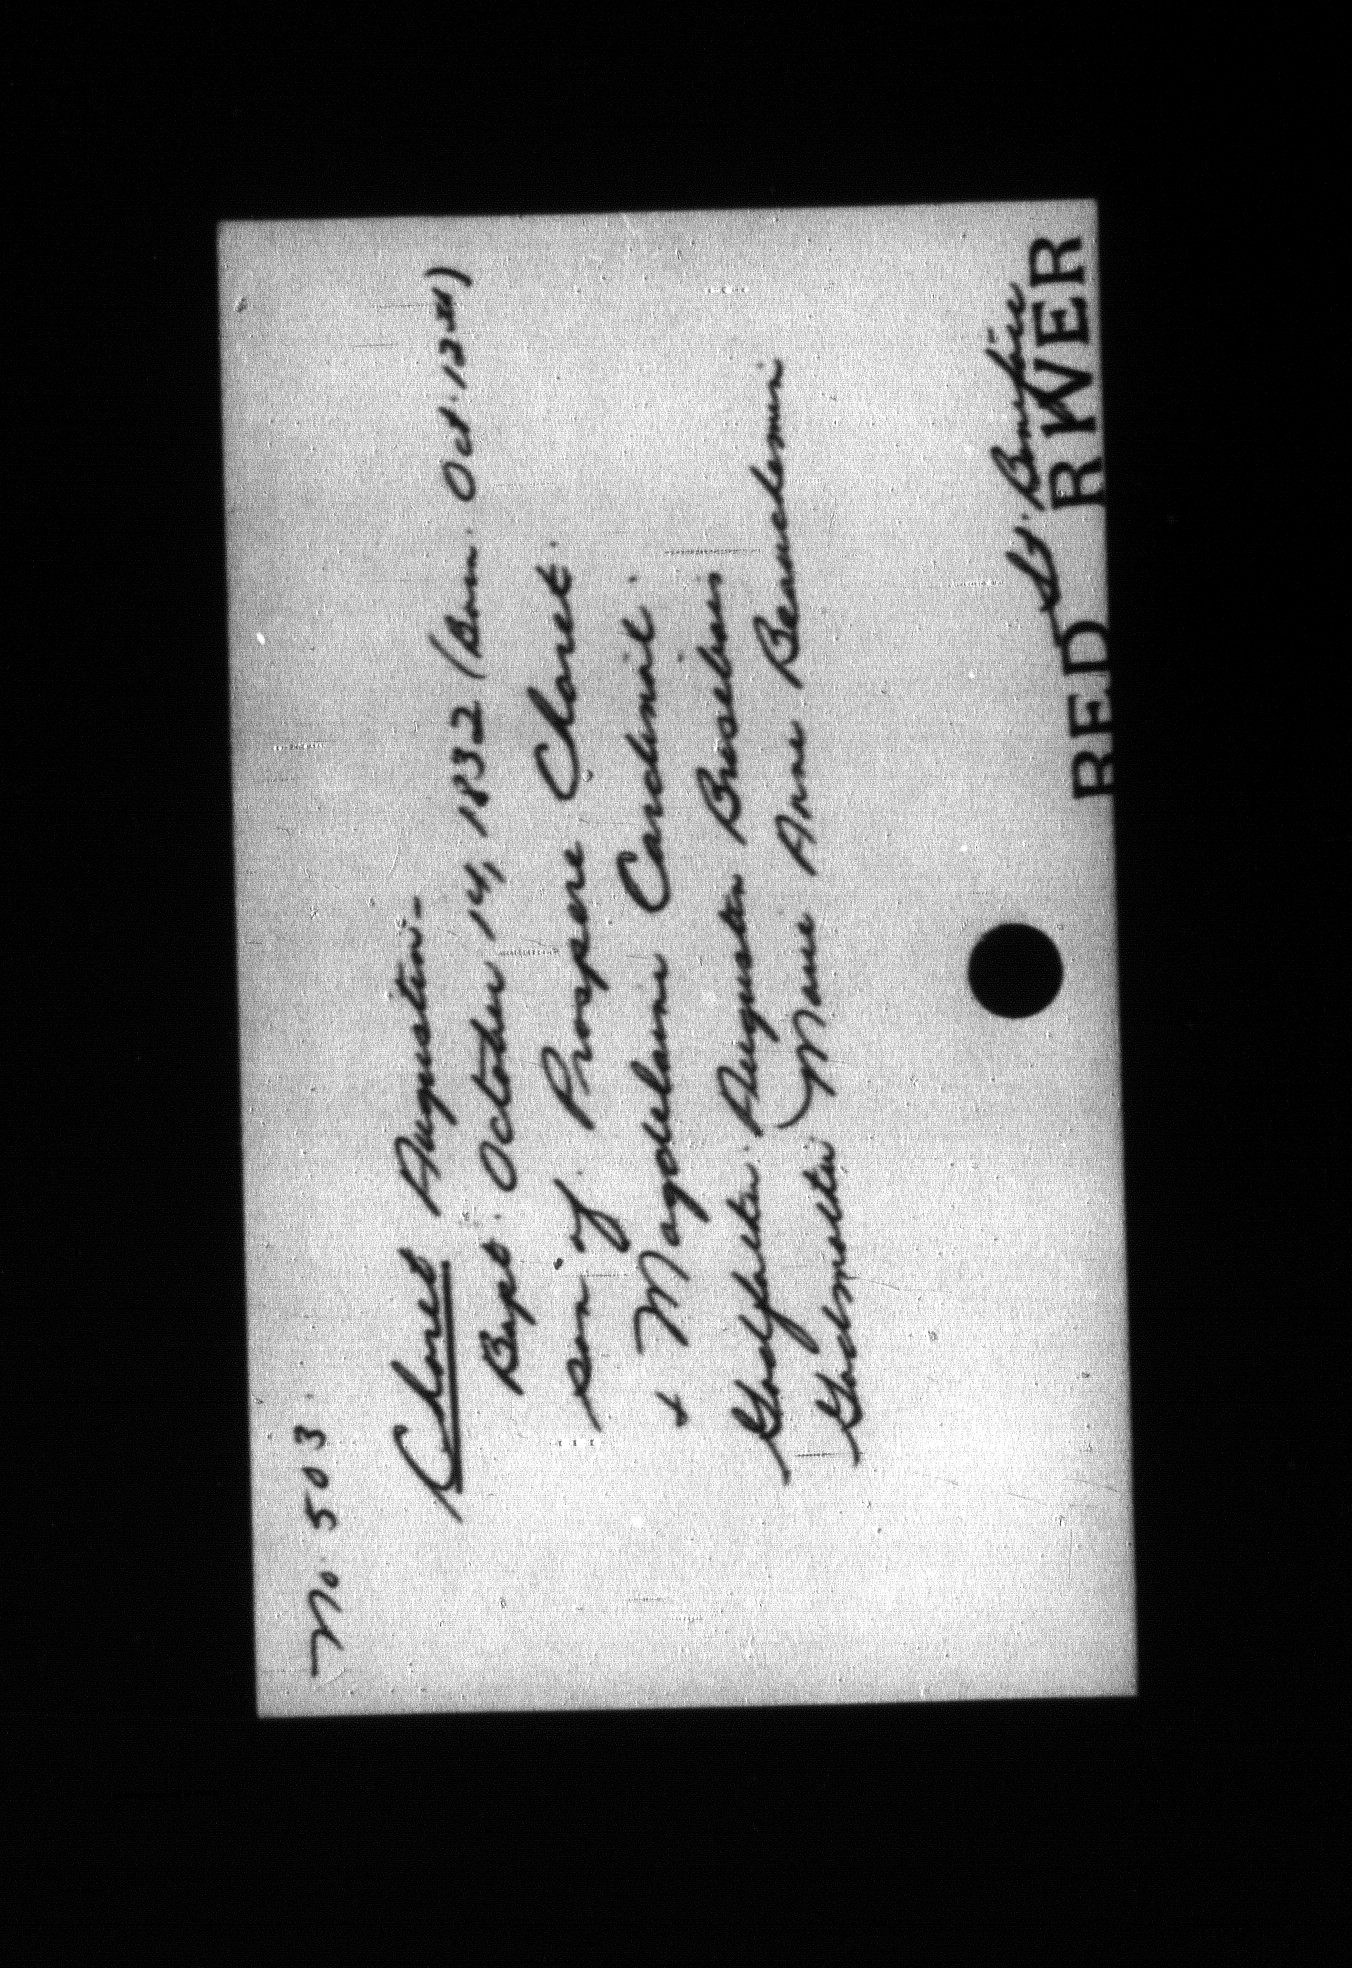 No. 503
Cloret Augustin -
Bapt. October 14, 1832 (Born. Oct. 12th)
son of. Prospere Cloret.
& Magdelaine Cardinal.
Godfather. Augustin
Godmother (Marie Anne Beauchemin
St. Boniface
RED RIVER